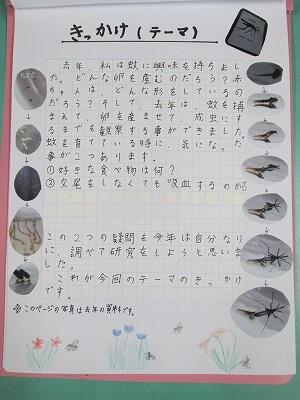 きっかけ(テーマ)
去年、私は蚊に興味を持ちまし
た。どんな卵を産むのだろう?赤
ちゃんは、どんな形をしているの
だろう?そして、去年は、蚊を捕
まえて、卵を産ませて、成虫にす
るまでを観察する事ができました。
蚊を育てている時に、気になった
事が2つあります。
①好きな食べ物は何?
②交尾をしなくても吸血するのか?
この2つの疑問を今年は自分なり
に、調べて研究をしようと思いま
した。
これが今回のテーマのきっかけ
です。
※このページの写真は去年の資料です。